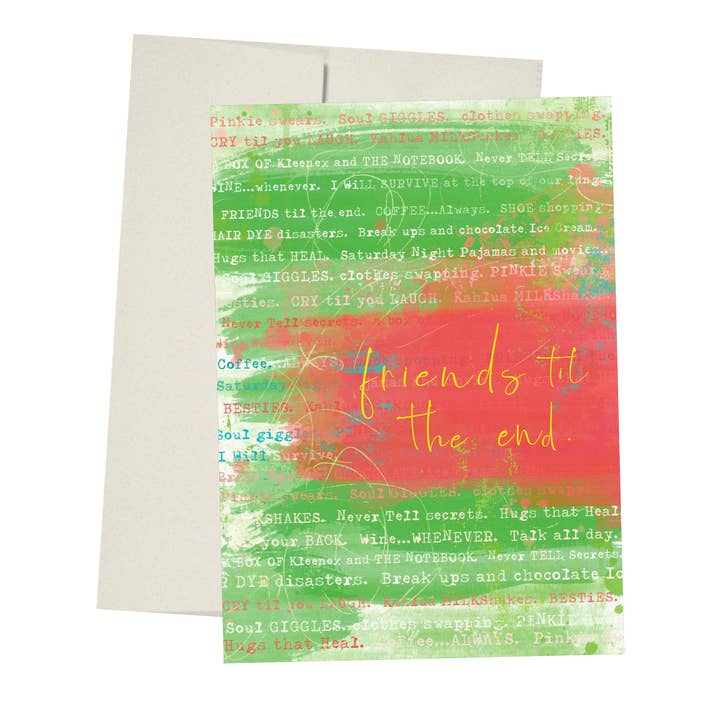 Pinkie swears. Soul GIGGLES. clothes swapping.
CRY til you LAUGH. Kahlua MILKshakes. BESTIES.
A BOX OF Kleenex and THE NOTEBOOK. Never TELL Secre
WINE...whenever. I WiLL SURVIVE at the top of our lungs
FRIENDS til the end. COFFEE...Always. SHOE shopping
HAIR DYE disasters. Break ups and chocolate Ice Cream.
Hugs that HEAL. Saturday Night Pajamas and movies.
Soul GIGGLES. clothes swapping. PINKIE Swear
Besties. CRY til you LAUGH. Kahlua MILKshakes
Never Tell secrets. a box of
Coffee. Always. shopping
Saturday Night Pajamas
BESTIES. Kahlua
friends til
the end.
Soul giggles
I Will Survive.
Break Ups
Pinkie swears. Soul GIGGLES. clothes swapping
KSHAKES. Never Tell secrets. Hugs that Heal.
your BACK. Wine...WHENEVER. Talk all day.
A BOX OF Kleenex and THE NOTEBOOK. Never TELL Secrets.
R DYE disasters. Break ups and chocolate Ic
CRY til you LAUGH. Kahlua MILKshakes. BESTiES.
Soul GIGGLES. clothes swapping. PINKIE
Hugs that Heal. Coffee...ALWAYS. Pinkie